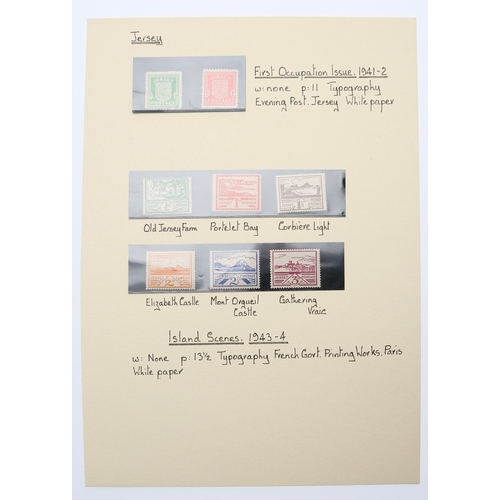 Jersey
First Occupation Issue. 1941-2
w: none p: 11 Typography
Evening Post. Jersey White paper
Old Jersey Farm Portelet Bay Corbiere Light
Elizabeth Castle Mont Orgueil Castle Gathering Vraic
Island Scenes. 1943-4
w: None p: 13½ Typography French Govt. Printing Works. Paris
White paper